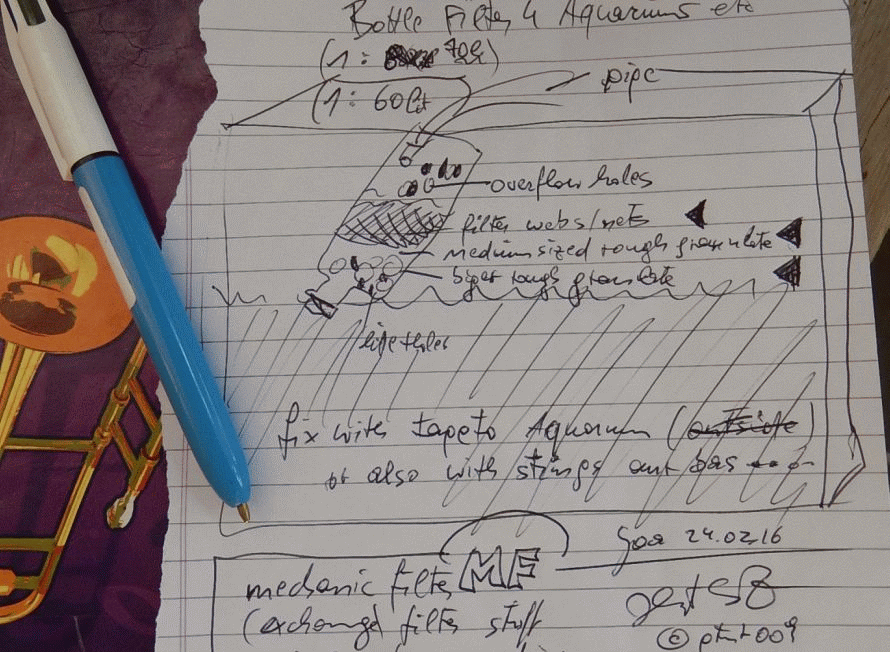 Bottle Filter 4 Aquariums etc
(1:
(1: 60Lt
pipe
overflow holes
filter webs/nets
medium sized rough granulate
biger rough granulate
fix with tape to Aquarium (outside)
or also with strings
Goa 24.02.16
mechanic filter MF
(exchange filter stuff
©